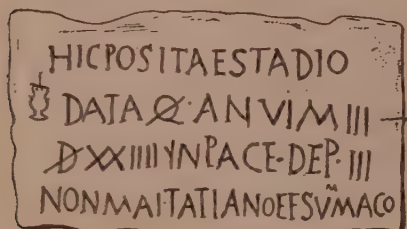 HIC POSITA EST ADIO
DATA Q · AN VI M III
D XXIIII YN PACE · DEP · III
NON MAI · TATIANO EF SVM̅ACO